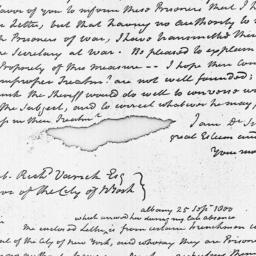 favor of you to inform these Prisoners that I h
Letter, but that having no authority to
Prisoners of War, I have transmitted their
Secretary at War. Be pleased to explain
Propriety of this measure -- I hope their com
improper Treatmt. are not well founded;
the Sheriff would do well to converse w
the Subject, and to correct whatever he may
in their Treatmt.
I am Dr Sir
great Esteem and
Your mo
Richd Varick Esq
of the City of N York
albany 25 Sept. 1800
which answered during my absence
The enclosed Letter is from certain Frenchmen c
of the City of New York, and whom they are Prisone